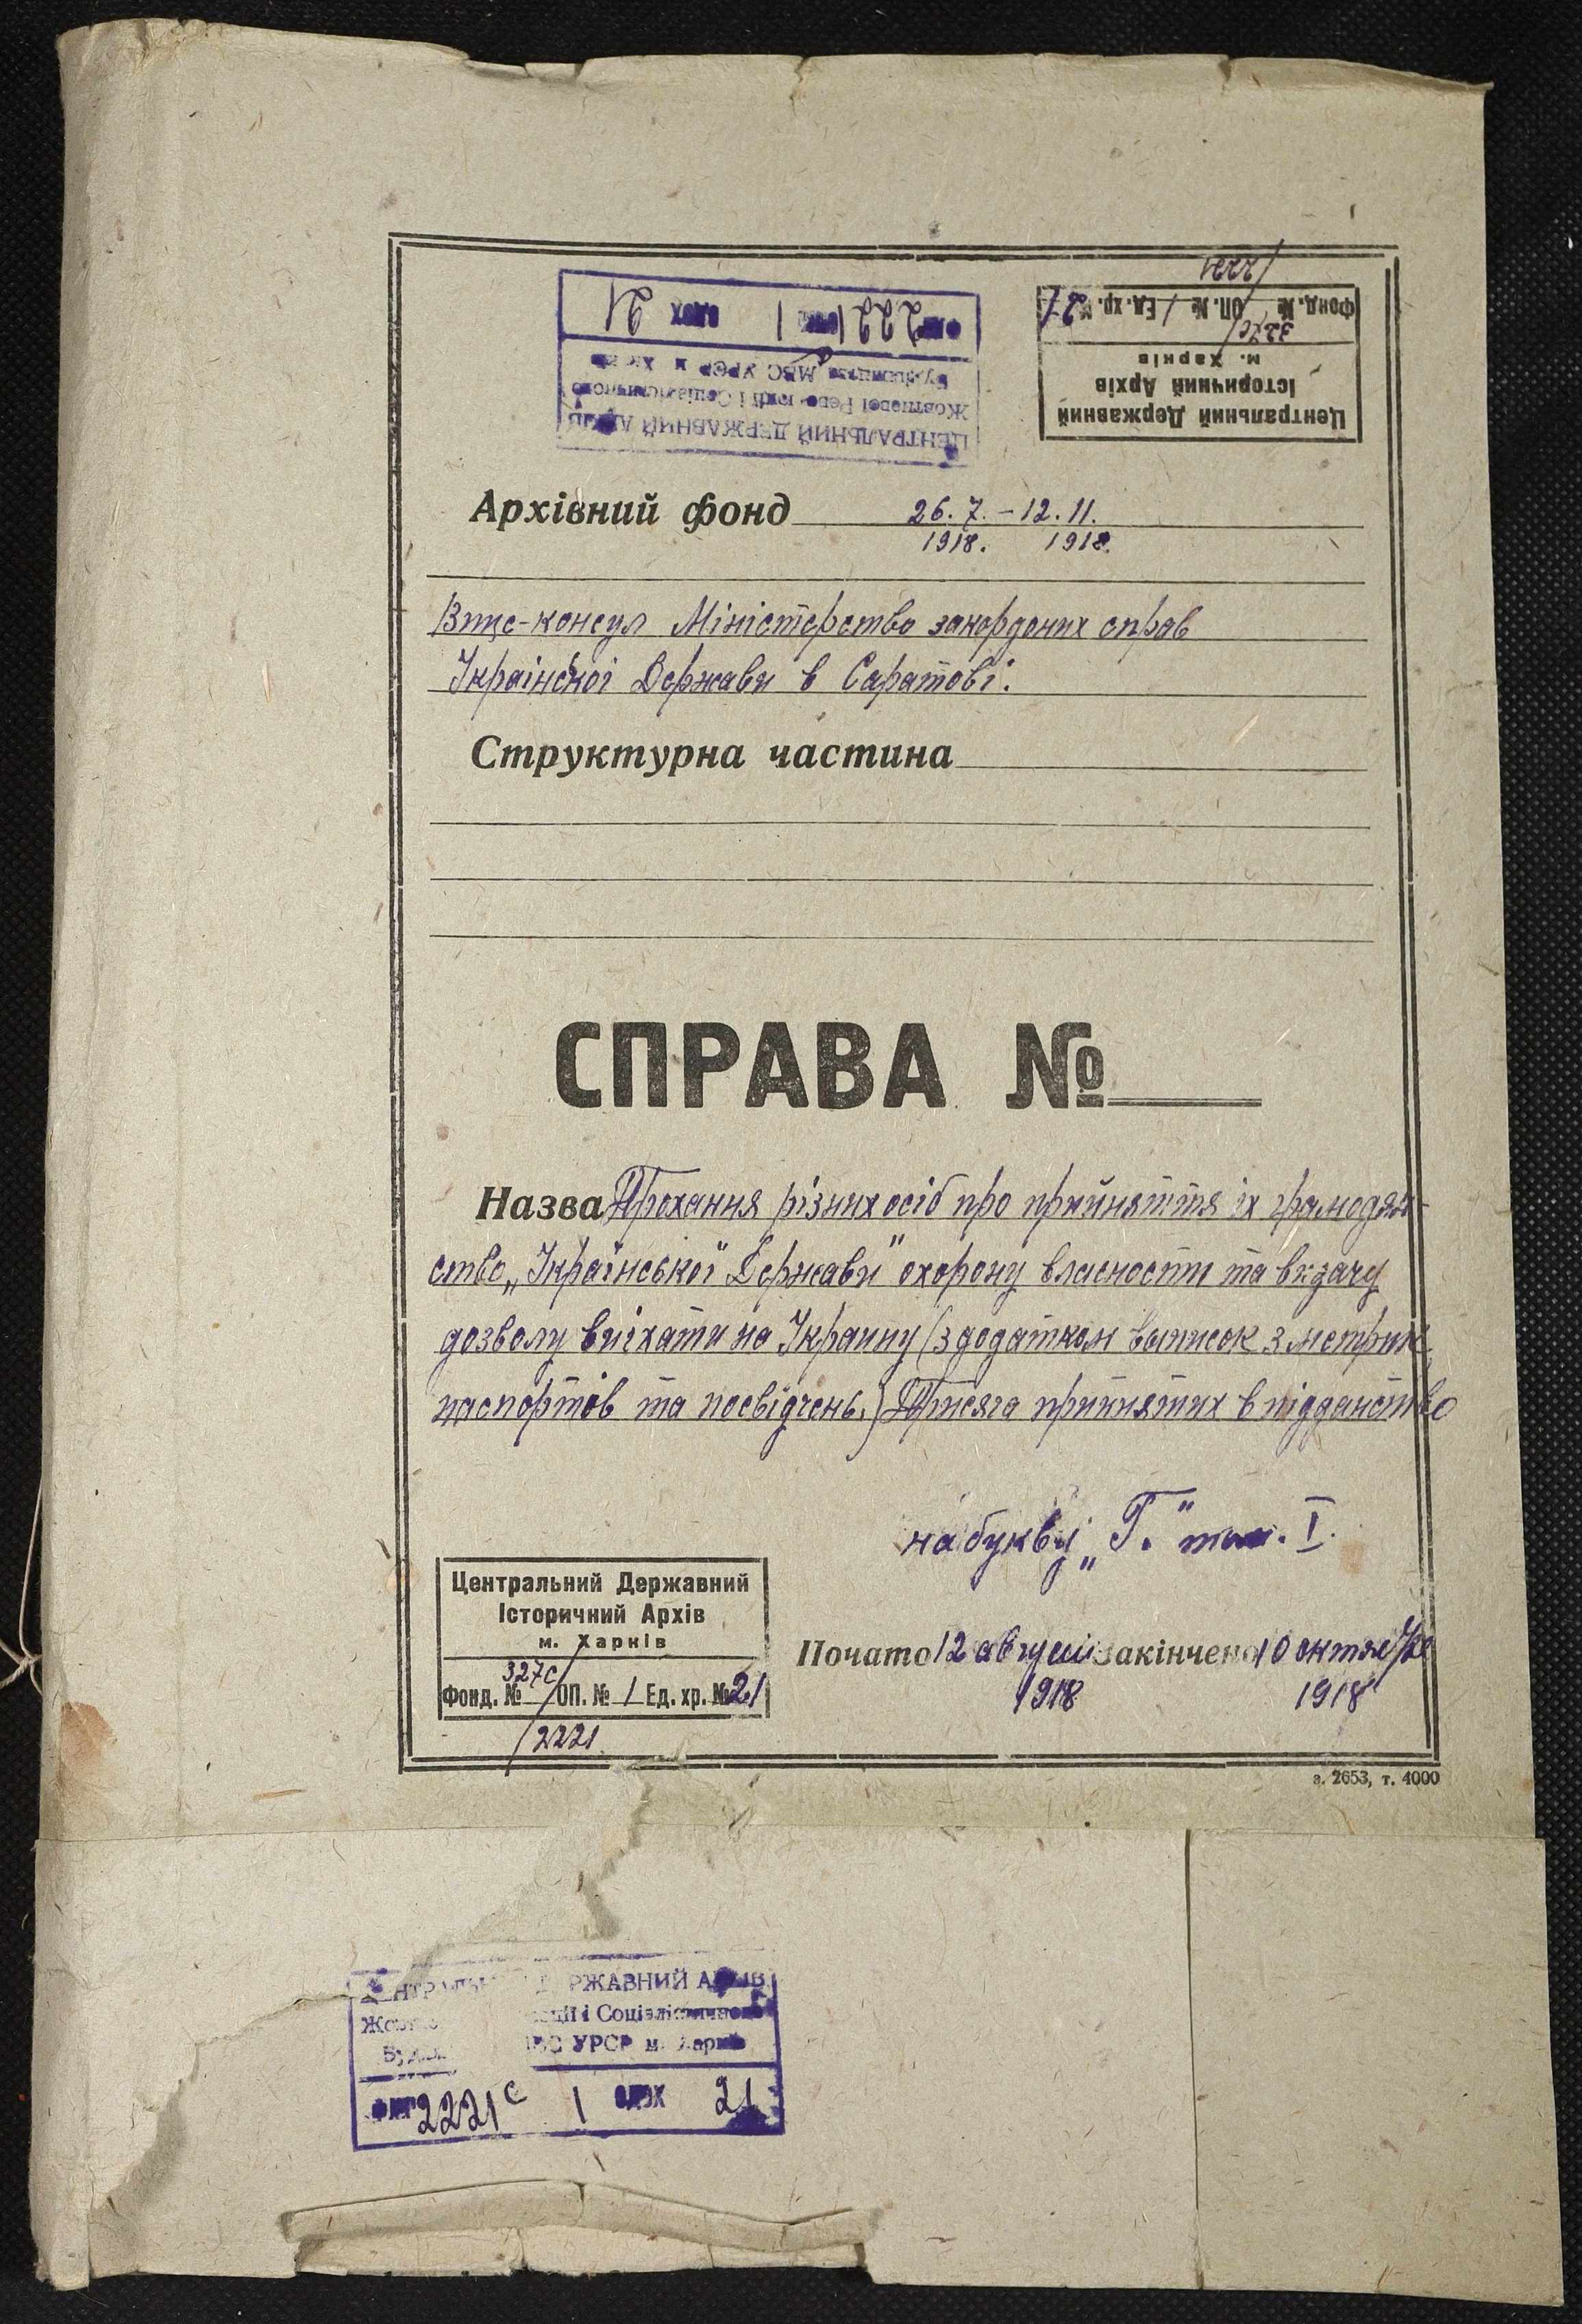 2221
Фонд. № 327с/ ОП. № 1 Ед. хр. № 21
м. Харків
Історичний Архів
Центральний Державний
2221 1 ОДЗХ 21
Будівництва МВС УРСР м. Харків
Жовтневої Революції і Соціалістичного
ЦЕНТРАЛЬНИЙ ДЕРЖАВНИЙ АРХІВ
Архівний фонд 26.7. – 12.11.
1918. 1918.
Віце-консул Міністерство закордоних справ
Української Держави в Саратові.
Структурна частина
СПРАВА №
Назва Прохання різних осіб про прийняття їх грамодян-
ство „Української Держави" охорону власности та видачу
дозволу виїхати на Украину (з додатком выписок з метрик,
паспортів та посвідчень.) Присяга прийнятих в підданство
на букви „Г." том. I.
Центральний Державний
Історичний Архів
м. Харків
Фонд. № 327с/ ОП. № 1 Ед. хр. № 21
/2221
Почато 12 августа закінчено 10 октября
1918 1918
з. 2653, т. 4000
ДЕРЖАВНИЙ АРХІВ
і Соціалістичного
УРСР м. Харків
2221с 1 ОДЗХ 21